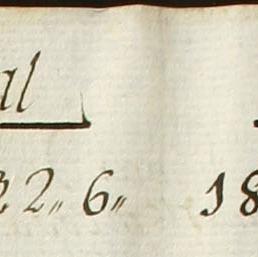 al
2,, 6,, 18